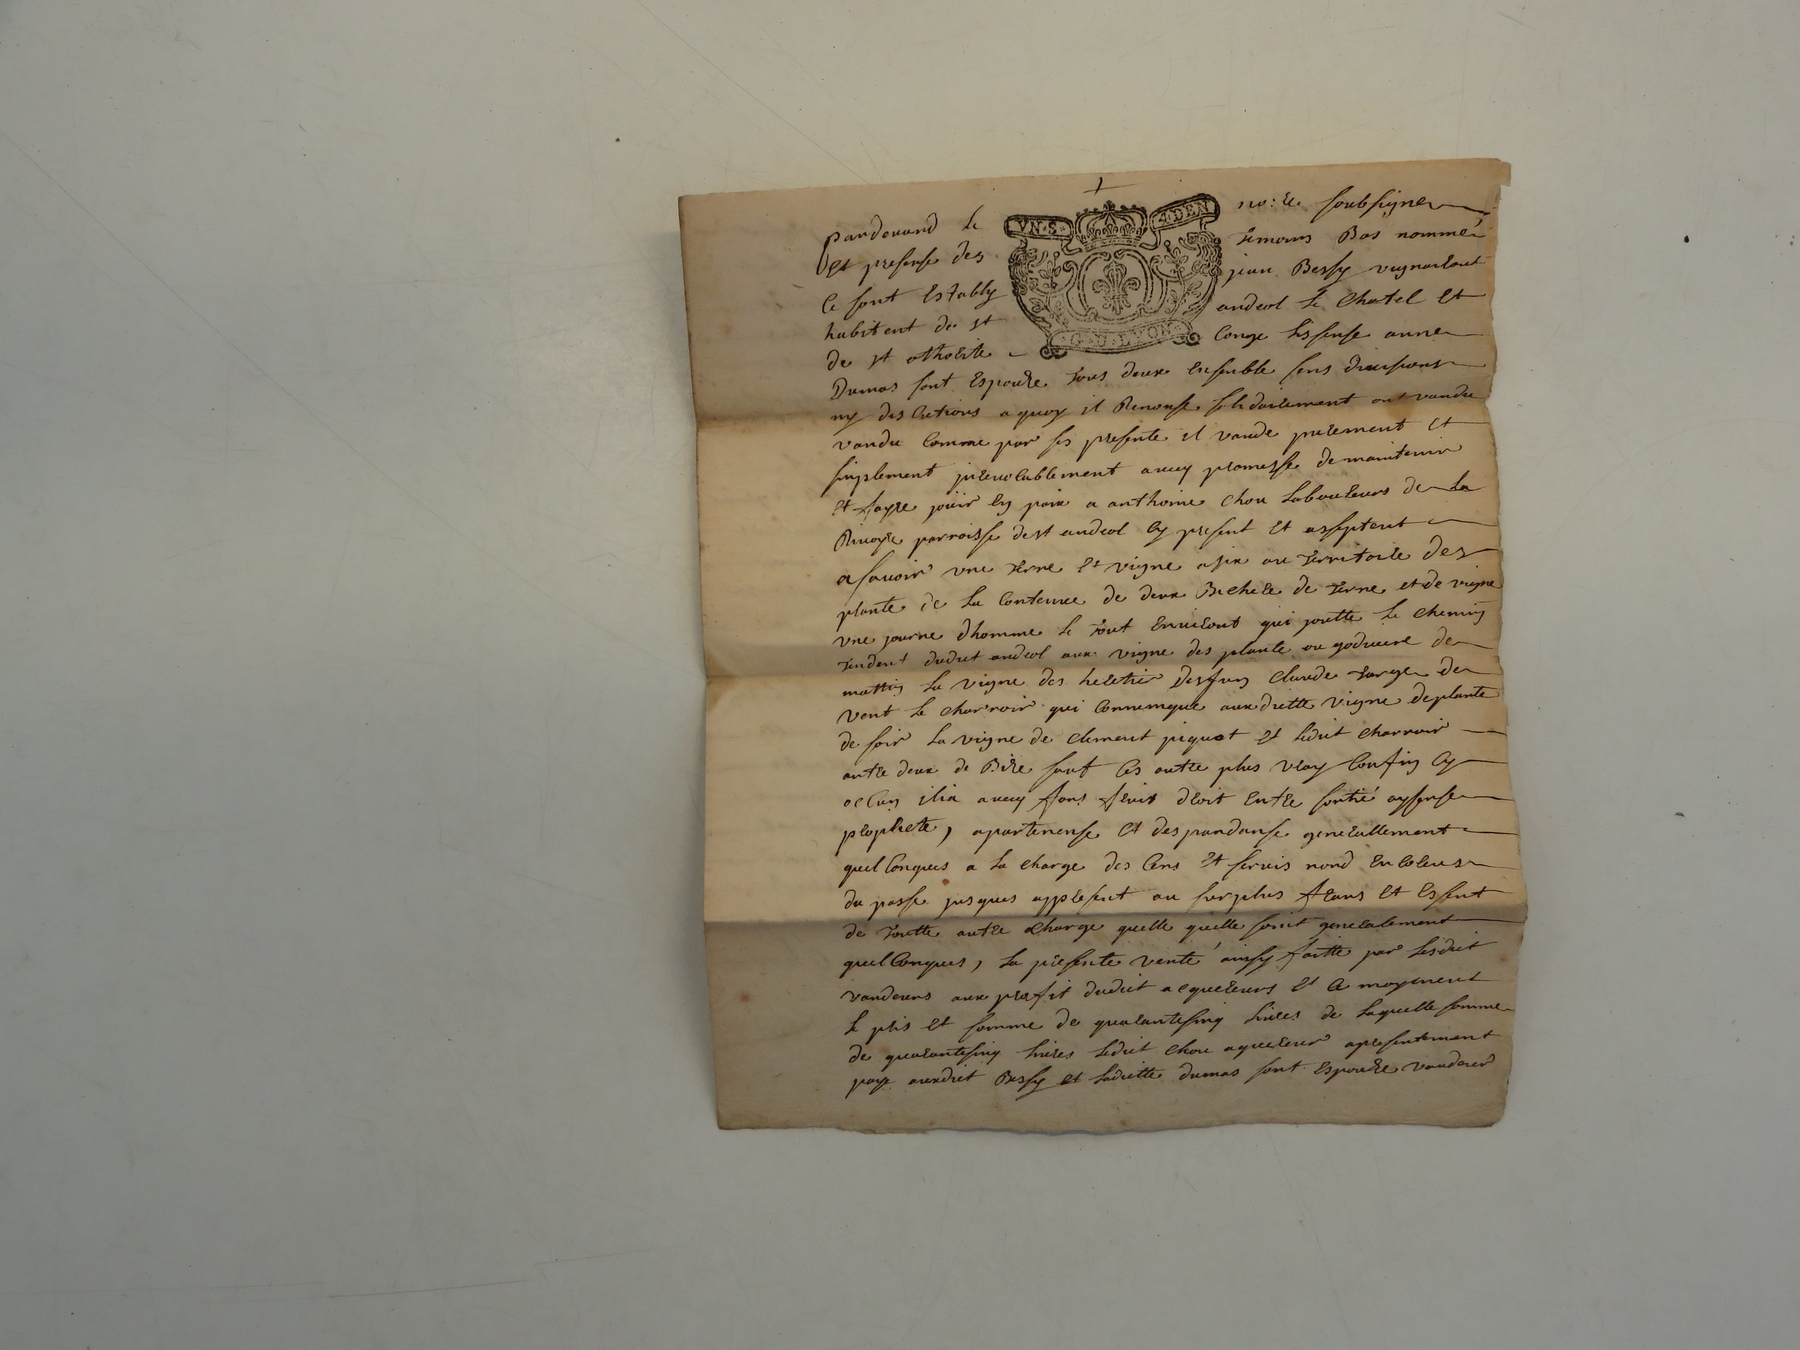 pardevand le no:re soubsigne
et presense des temoins Bas nommé
Ce sont Establÿ jean Bessy vigneront
habitent de st andeol le Chatel Et
de st othorite Conge Lissense anne
VN·S· 4·DEN
G·D·LYON·
Dumas sont Espouze tous deux Ensemble sens divisions
ny discutions a quoy il Renonse solidairement ont vandu
vandu Comme par ses presente il vande purement Et
simplement jrevocablement avecq promesse de maintenir
Et fayre joüir En paix a anthoine Chou Laboureurs de La
Rivoyre parroisse de st andeol Cy present Et asseptent
asavoir une terre Et vigne asize au territoire des
plante de La Contenue de deux Bichere de terre et de vigne
une journe dhomme le tout Environt qui joutte le Chemin
tendent dudit andeol aux vigne des plante ou godivere de
mattin La vigne des heretier desfun Claude targe de
vent le Charroir qui Connunique auxditte vigne de plante
de soir La vigne de Clement piquet et Ledit Charroir
antre deux de Bize sauf Ces autre plus vray Confin Cy
oeCun ilia avecq fons fruit droit Entre sortié aysense
proprieté, apartenense Et despandanse generallement
quelConques a La Charge des Cens Et servis nord Encoleus
du passe jusques appresent au surplus frans Et Essent
de toutte autre Charge quelle quelle soint generalement
quelConques, La presente venté ainsy faitte par Lesdit
vandeurs aux profit dudit acquereurs Et Ce moyenent
Le pris Et somme de quarantesinq Livres de Laquelle somme
de quarantesinq Livres Ledit Chou aquereur apresentement
paye auxdiet Bessy et Laditte dumas sont Espouze vandeur